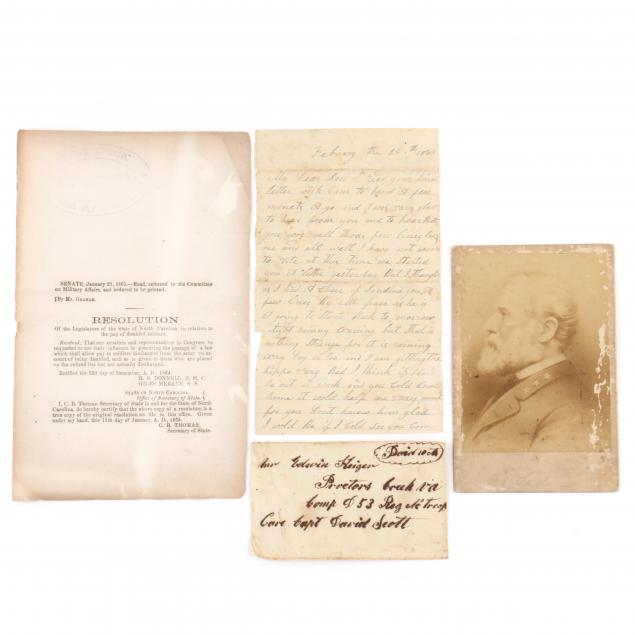 SENATE, January 21, 1865.—Read, referred to the Committee
on Military Affairs, and ordered to be printed.
[By Mr. GRAHAM.
RESOLUTION
Of the Legislature of the State of North Carolina in relation to
the pay of disabled soldiers.
Resolved, That our senators and representatives in Congress be
requested to use their influence in procuring the passage of a law
which shall allow pay to soldiers discharged from the army on ac-
count of being disabled, such as is given to those who are placed
on the retired list but are not actually discharged.
Ratified the 23d day of December, A. D., 1864.
R. S. DONNELL, S. H. C.
GILES MEBANE, S. S.
STATE OF NORTH CAROLINA,
Office of Secretary of State.
I, C. R. Thomas, Secretary of State in and for the State of North
Carolina, do hereby certify that the above copy of a resolution is a
true copy of the original resolution on file in this office. Given
under my hand, this 11th day of January, A. D., 1865.
C. R. THOMAS,
Secretary of State.
Febuary the 24th
My Dear Son I Rec your kind
letter with Care to hand A few
monets A go and I was very glad
to hear from you and to hear that
you was well these few lines leav
me and all well I have not much
to rite at this time we started
you A letter yesterday But I thought
as I had A Chanc of Sending you A
few lines By as he is
A going to Start Back to morrow
it is A rainy Evening But that is
nothing Strange for it is raining
evry Day or two and I am getting the
hippo vary Bad I think if it
and you Cold Come
home it wold help me vary much
for you Dont know how glad
I wold Be if I Cold See you Com
Paid 10 cts
Mr Edwin Keiger
Proctors Creek va
Comp D 53 Reg Nc troop
Care Capt David Scott